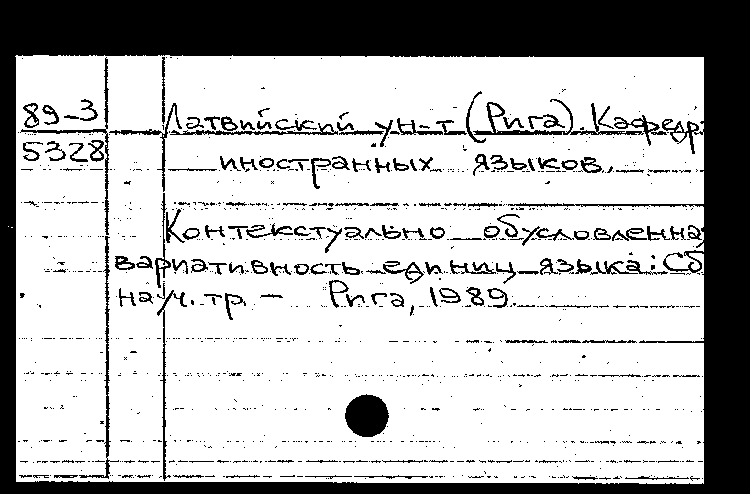 89-3
5328
Латвийский ун-т (Рига). Кафедр
иностранных языков.
Контекстуально обусловленна
вариативность единиц языка: Сб
науч. тр. — Рига, 1989.